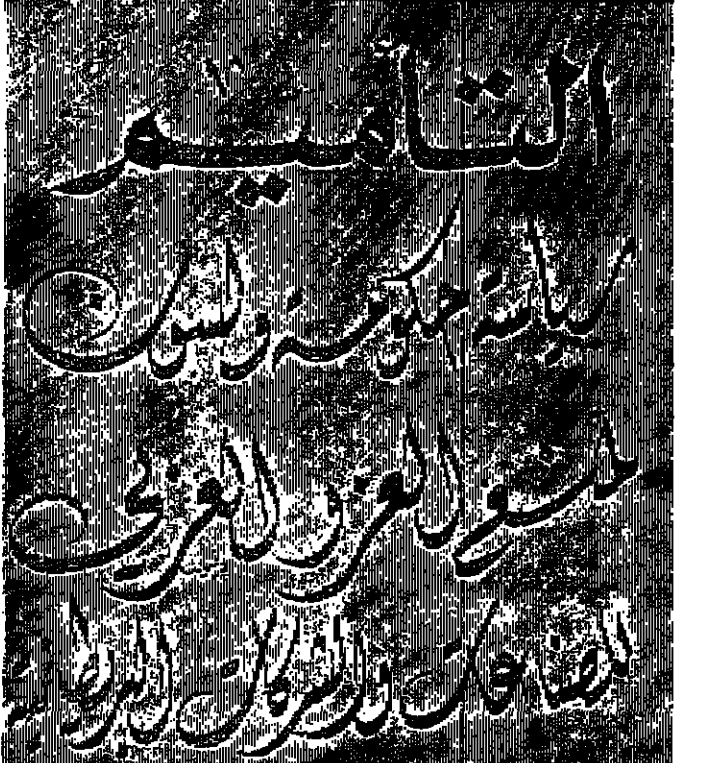 التأميم
سياسة حكومة ولسون
العربي
للصناعات والشركات البريطانية